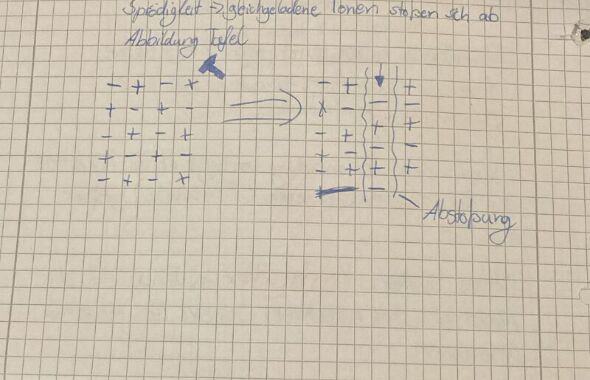 Sprödigkeit => gleichgeladene Ionen stoßen sich ab
Abbildung Tafel
- + - +
+ - + -
- + - +
+ - + -
- + - +
- + +
+ - - -
- + + +
+ - - -
- + + +
+ - -
Abstoßung